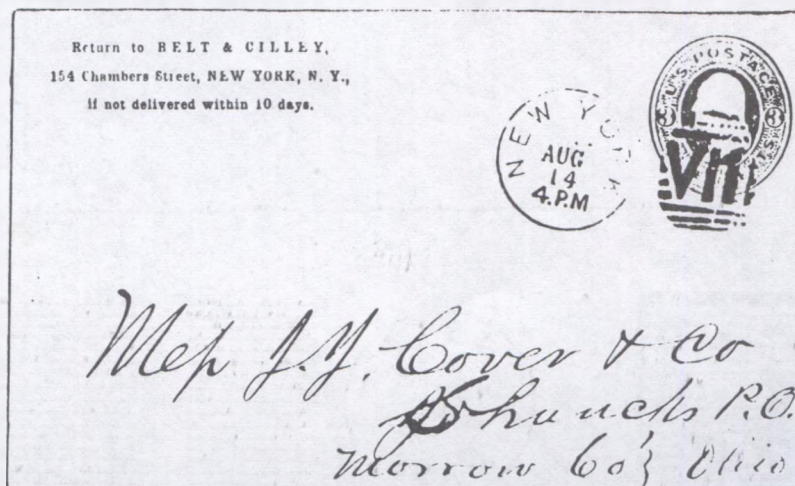 Return to BELT & CILLEY,
154 Chambers Street, NEW YORK, N. Y.,
if not delivered within 10 days.
NEW YORK
AUG
14
4.P.M
U.S. POSTAGE
3 3
VII
J. J. Cover & Co
Shaucks P.O.
Morrow Co, Ohio